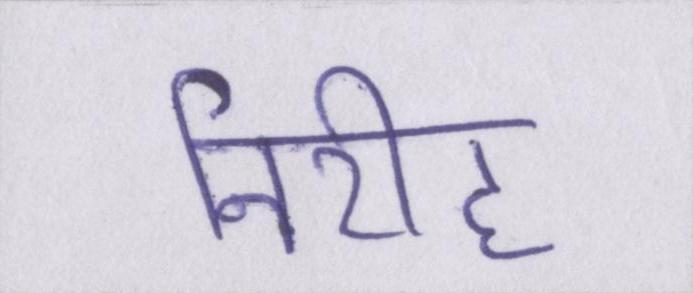 निरीह